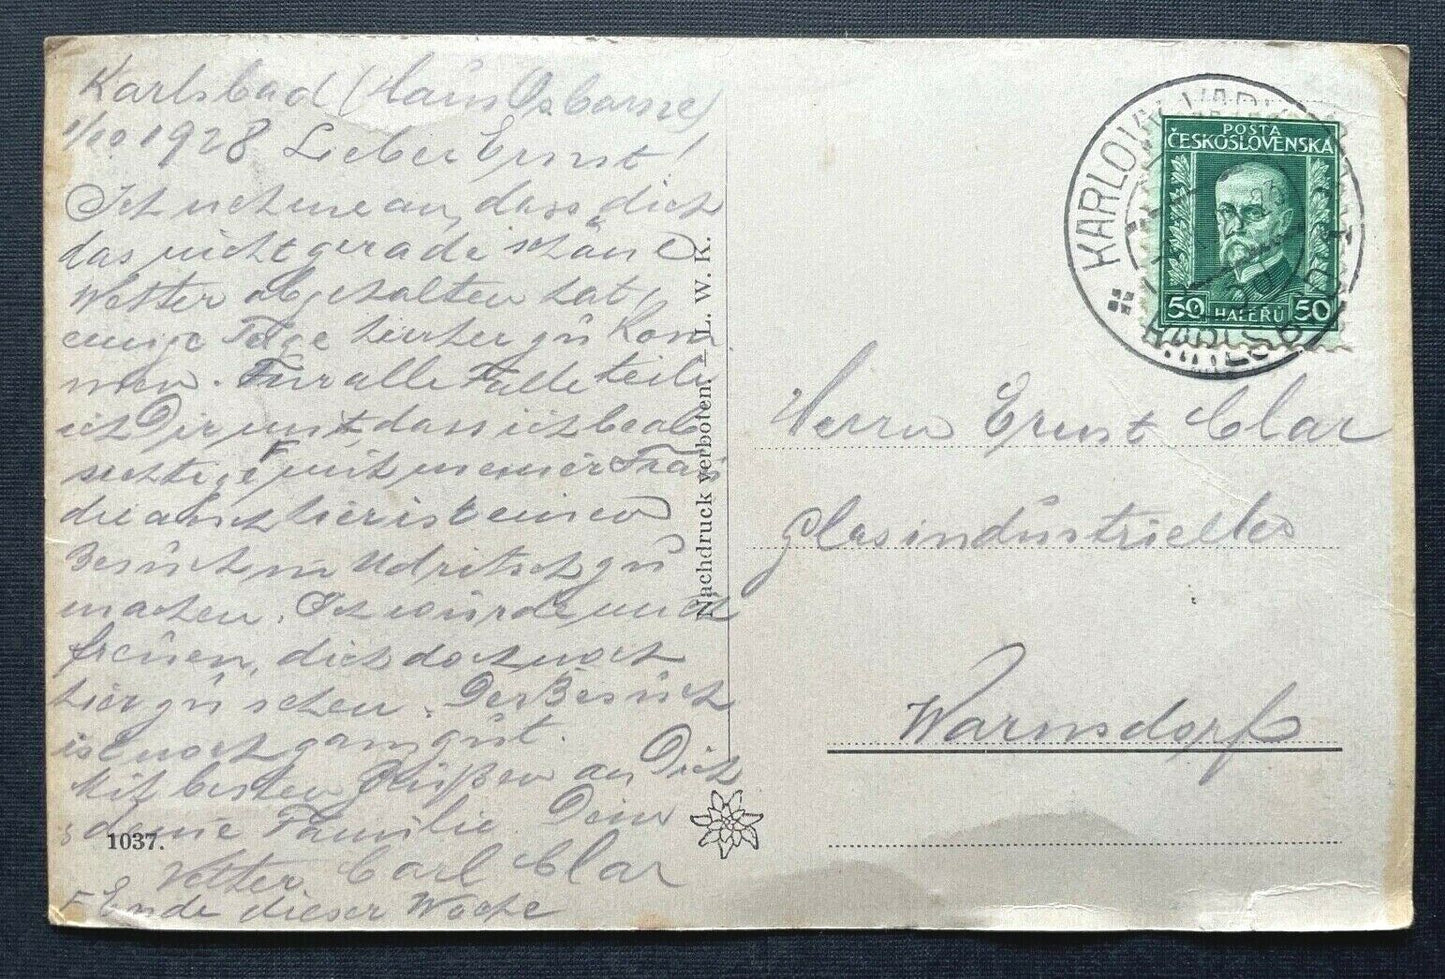 Karlsbad (Haus Osborne)
1/10. 1928 Lieber Ernst!
Ich nehme an, dass dich
das nicht gerade schöne
Wetter abgehalten hat,
einige Tage hierher zu kom
men. Für alle Fälle teile
ich Dir mit, dass ich beab
sichtige F mit meiner Frau
die auch hier ist einen
Besuch in Udritsch zu
machen. Ich würde mich
freuen, dich doch noch
hier zu sehen. Der Besuch
ist noch ganz gut.
Mit besten Grüßen an Dich
& deine Familie Dein
Vetter Carl Clar
F Ende dieser Woche
1037.
Nachdruck verboten. – L. W. K.
KARLOVY VARY
KARLSBAD
POSTA
ČESKOSLOVENSKA
50 HALÉŘŮ 50
Herrn Ernst Clar
Glasindustrieller
Warnsdorf